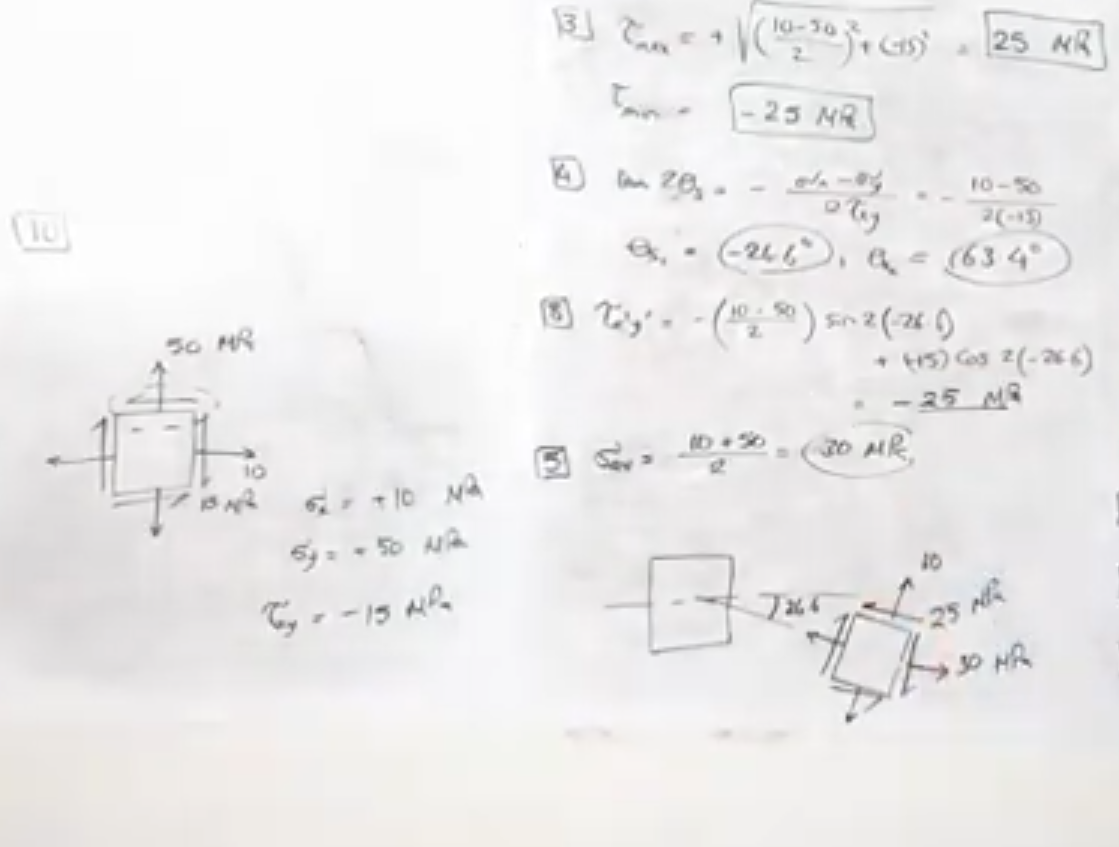 10
50 MPa
10
15 MPa
σx = +10 MPa
σy = +50 MPa
τxy = -15 MPa
3 τmax = + √((10-50/2)² + (-15)²) = 25 MPa
τmin = -25 MPa
4 tan 2θs = - σx - σy / 2τxy = - 10-50 / 2(-15)
θs1 = -26.6°, θs2 = 63.4°
8 τx'y' = -(10-50/2) sin 2(-26.6)
+ (-15) cos 2(-26.6)
= -25 MPa
5 σav = 10+50 / 2 = 30 MPa
26.6
25 MPa
30 MPa